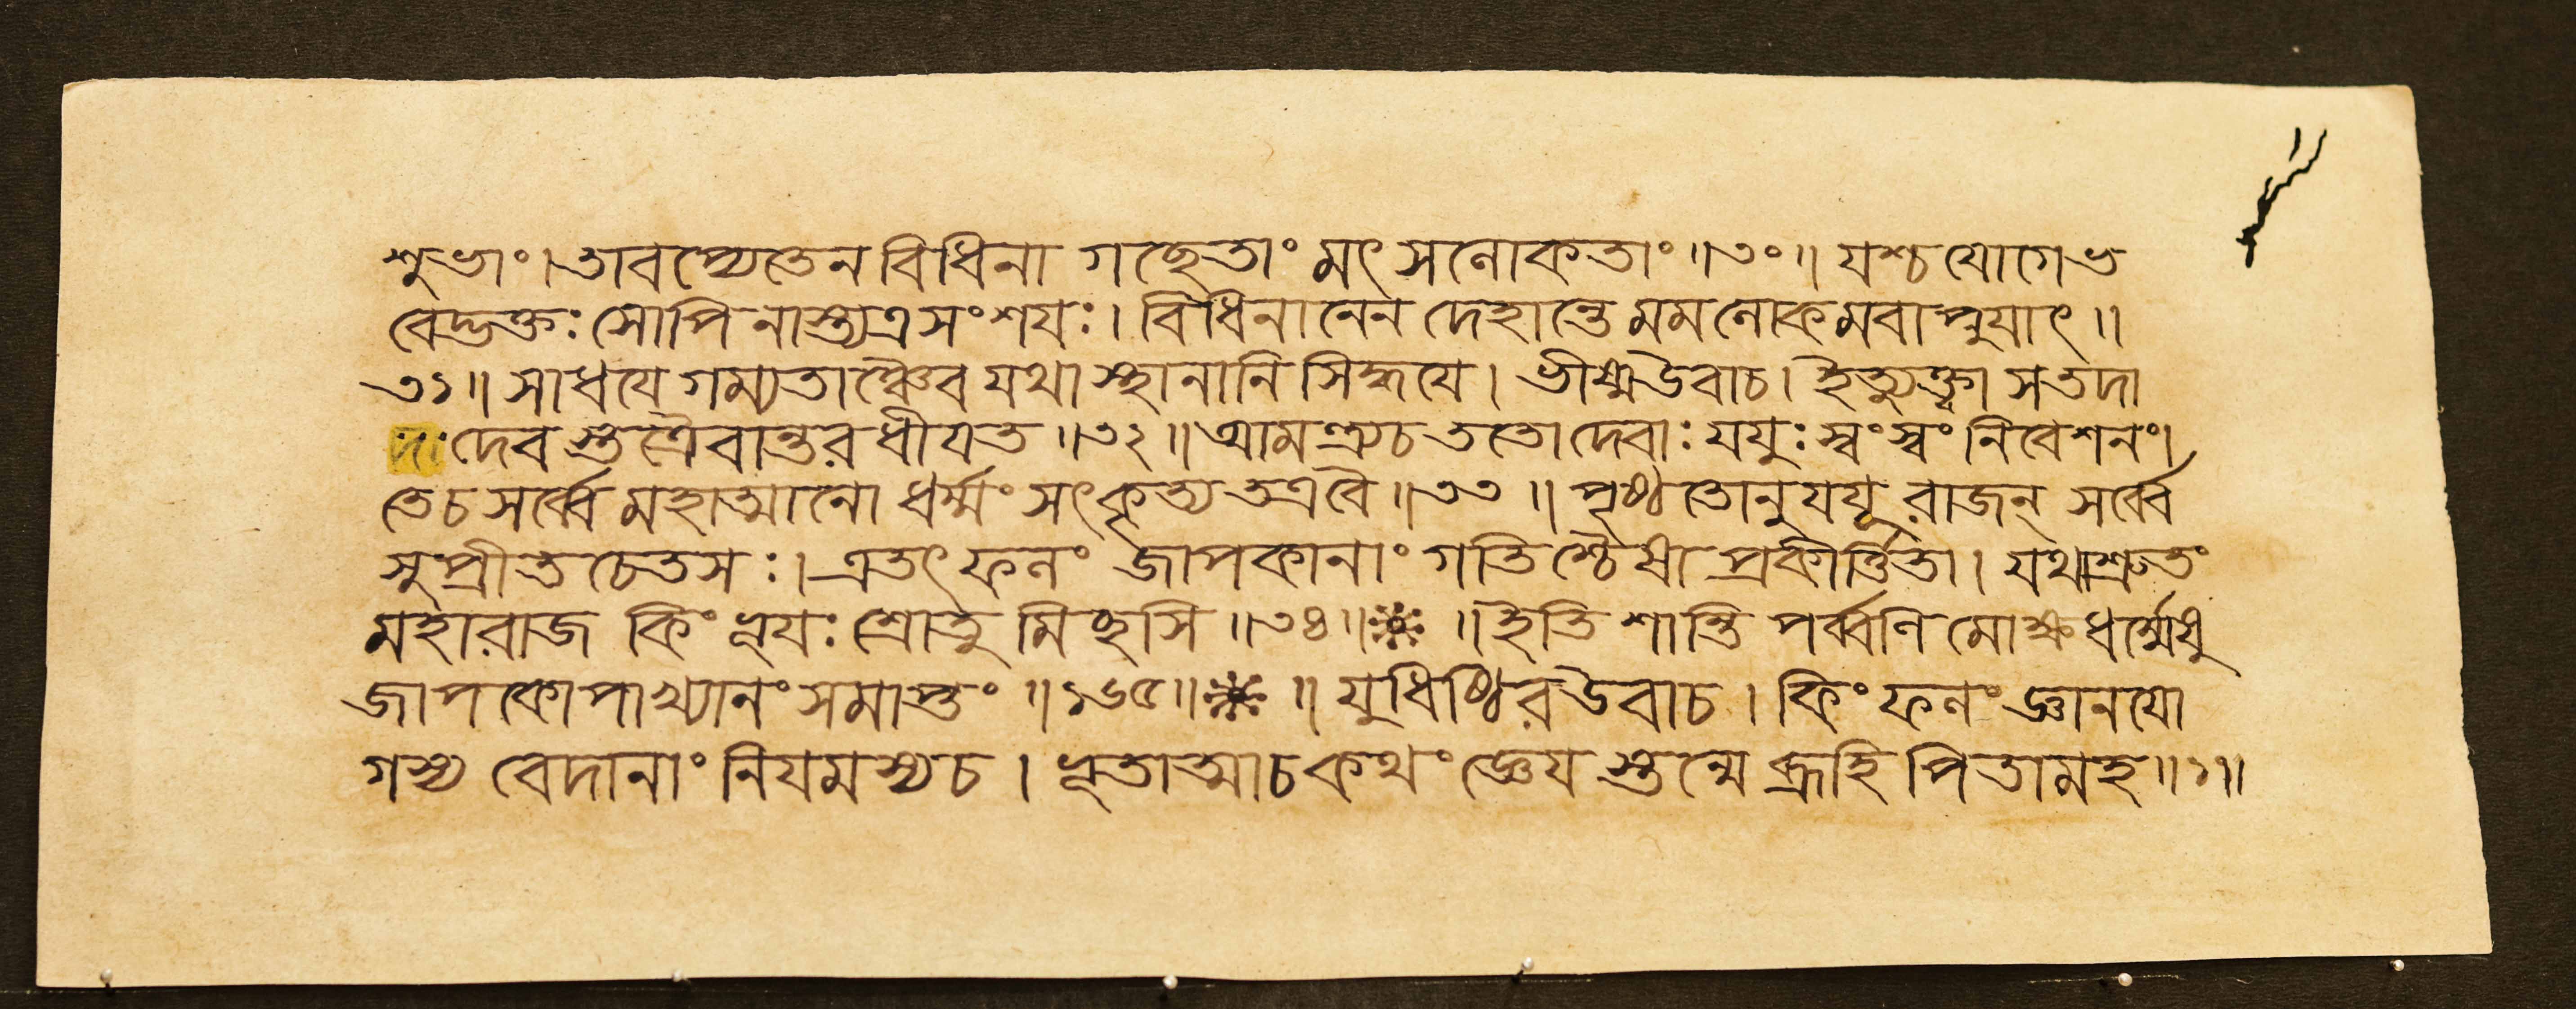 শুভাং।তাবপ্যেতেন বিধিনা গচ্ছেতাং মৎ সলোকতাং॥৩০॥ যশ্চ যোগে ভ
বেদ্ভক্তঃ সোপি নাস্ত্যত্র সংশয়ঃ। বিধিনানেন দেহান্তে মম লোকমবাপ্নুয়াৎ॥
৩১॥ সাধয়ে গম্যতাঞ্চৈব যথা স্থানানি সিদ্ধয়ে। ভীষ্মউবাচ। ইত্যুক্ত্বা সতদা
দেব স্তত্রৈবান্তরধীয়ত॥৩২॥আমন্ত্র্যচ ততো দেবাঃ যযুঃ স্বং স্বং নিবেশনং।
তেচ সর্ব্বে মহাত্মানো ধর্ম্মং সৎকৃত্য তত্রবৈ॥৩৩॥ পৃষ্ঠতোনুযযূ রাজন্ সর্ব্বে
সুপ্রীত চেতসঃ। এতৎ ফলং জাপকানাং গতিশ্চৈষা প্রকীর্ত্তিতা। যথাশ্রুতং
মহারাজ কিং ভূয়ঃ শ্রোতু মিচ্ছসি॥৩৪॥ ॥ইতি শান্তি পর্ব্বণি মোক্ষধর্ম্মেষু
জাপকোপাখ্যানং সমাপ্তং॥২৬৫॥ ॥যুধিষ্ঠিরউবাচ। কিং ফলং জ্ঞানযো
গস্য বেদানাং নিয়মস্যচ। ভূতাত্মাচ কথং জ্ঞেয় স্তন্মে ব্রূহি পিতামহ॥১॥